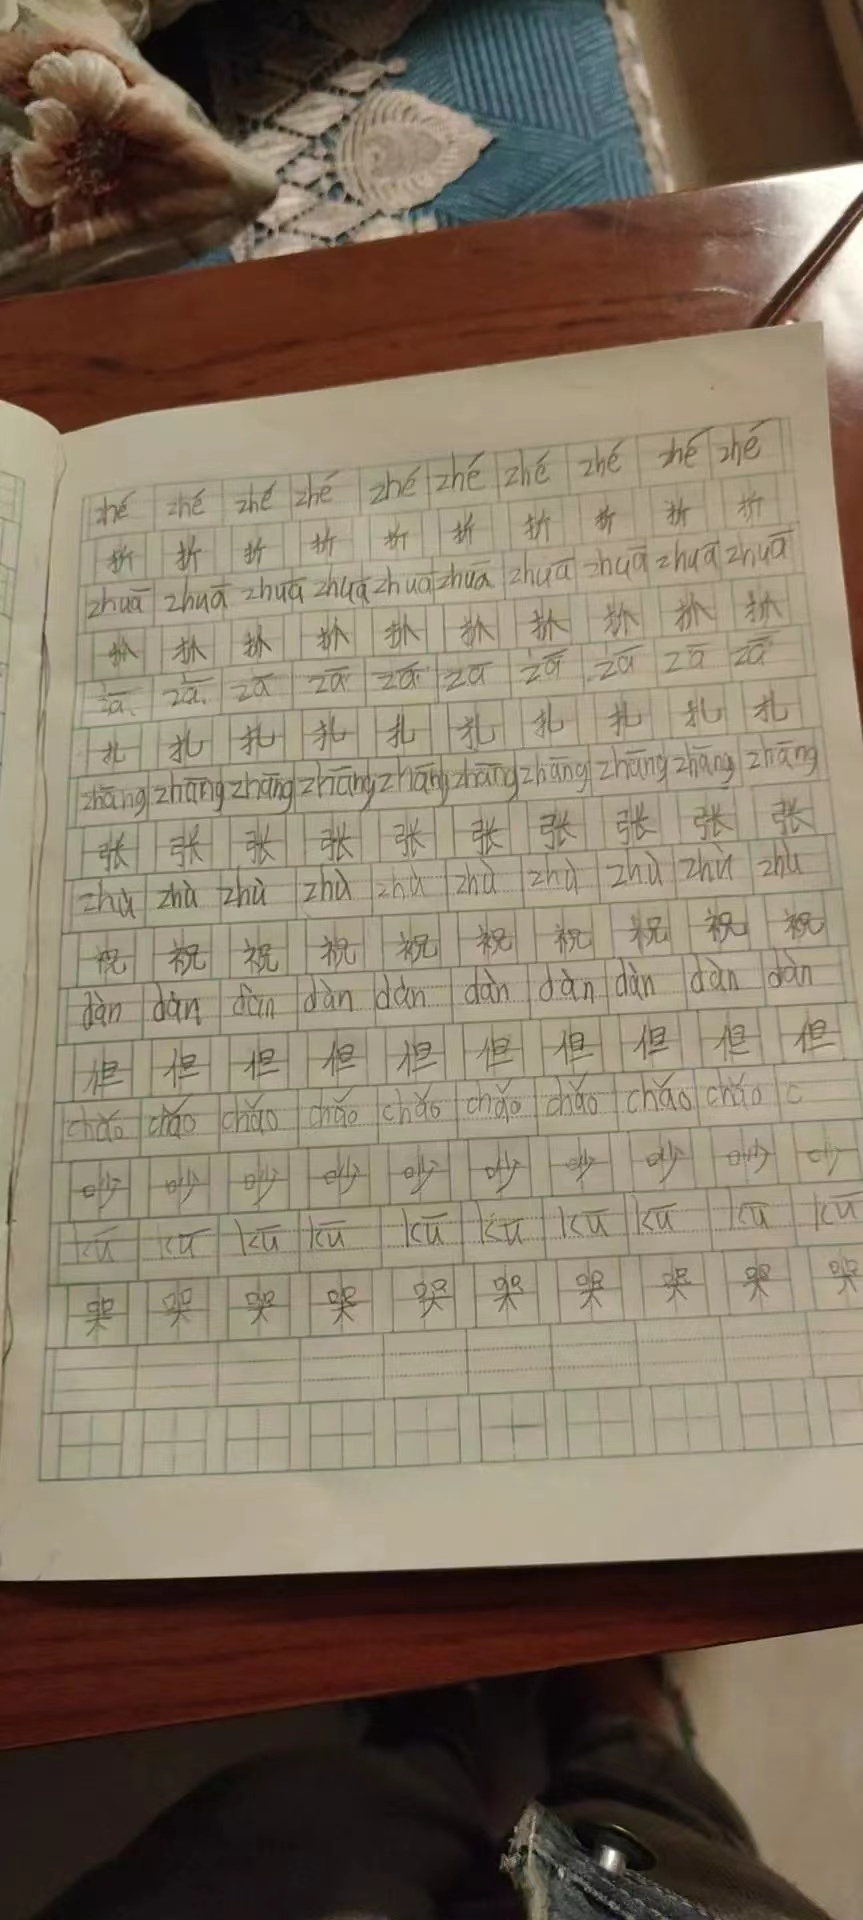 zhé zhé zhé zhé zhé zhé zhé zhé zhé zhé
折 折 折 折 折 折 折 折 折 折
zhuā zhuā zhuā zhuā zhuā zhuā zhuā zhuā zhuā zhuā
抓 抓 抓 抓 抓 抓 抓 抓 抓 抓
zā zā zā zā zā zā zā zā zā zā
扎 扎 扎 扎 扎 扎 扎 扎 扎 扎
zhāng zhāng zhāng zhāng zhāng zhāng zhāng zhāng zhāng zhāng
张 张 张 张 张 张 张 张 张 张
zhù zhù zhù zhù zhù zhù zhù zhù zhù zhù
祝 祝 祝 祝 祝 祝 祝 祝 祝 祝
dàn dàn dàn dàn dàn dàn dàn dàn dàn dàn
但 但 但 但 但 但 但 但 但 但
chǎo chǎo chǎo chǎo chǎo chǎo chǎo chǎo chǎo c
吵 吵 吵 吵 吵 吵 吵 吵 吵 吵
kū kū kū kū kū kū kū kū kū kū
哭 哭 哭 哭 哭 哭 哭 哭 哭 哭